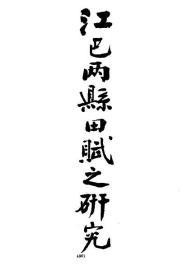 江巴两縣田賦之研究